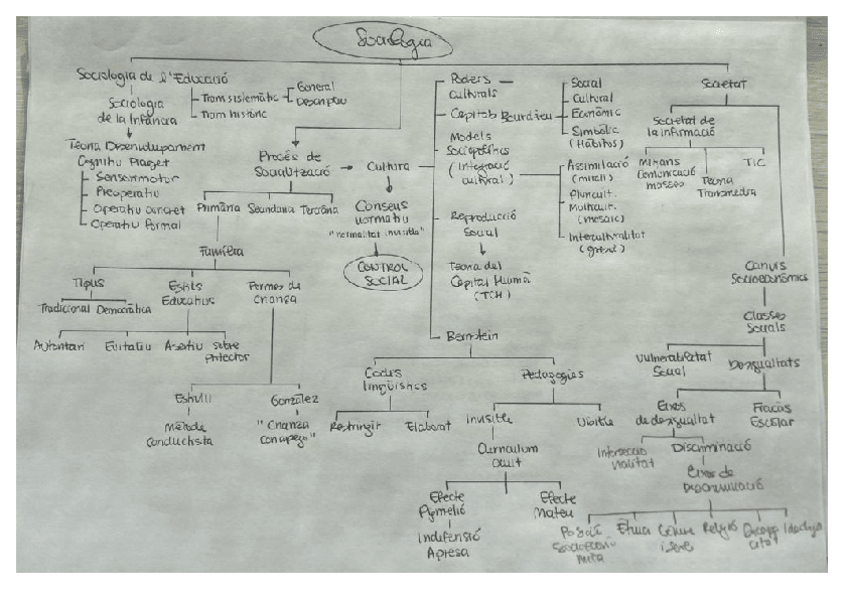 Sociologia
Sociologia de l'Educació
Sociologia
de la Infància
Tram sistemàtic
General
Descriptiu
Tram històric
Teoria Desenvolupament
Cognitiu Piaget
Sensoriomotor
Preoperatiu
Operatiu concret
Operatiu formal
Procés de
Socialització
Primària
Secundària
Terciària
Família
Tipus
Tradicional
Democràtica
Estils
Educatius
Autoritari
Evitatiu
Assertiu
Sobre
Protector
Formes de
Criança
Estivill
Mètode
Conductista
González
"Crianza
con apego"
Cultura
Consens
normatiu
"normalitat invisible"
CONTROL
SOCIAL
Poders
Culturals
Capitals Bourdieu
Social
Cultural
Econòmic
Simbòlic
(Hàbitus)
Models
Sociopolítics
(Integració
cultural)
Assimilació
Pluricult.
Multicult.
(mosaic)
Interculturalitat
Reproducció
Social
Teoria del
Capital Humà
(TCH)
Bernstein
Codis
lingüístics
Restringit
Elaborat
Pedagogies
Invisible
Visible
Curriculum
ocult
Efecte
Pigmelió
Indefensió
Apresa
Efecte
Mateu
Societat
Societat de
la informació
Mitjans
Comunicació
masses
Teoria
Transmedia
TIC
Canvis
Socioeconòmics
Classes
Socials
Vulnerabilitat
Social
Desigualtats
Eixos
de desigualtat
Fracàs
Escolar
Intersecció
nalitat
Discriminació
Eixos de
Discriminació
Posició
Socioeconò
mica
Ètnia
Gènere
Religió
Discapa
citat
Ideologia